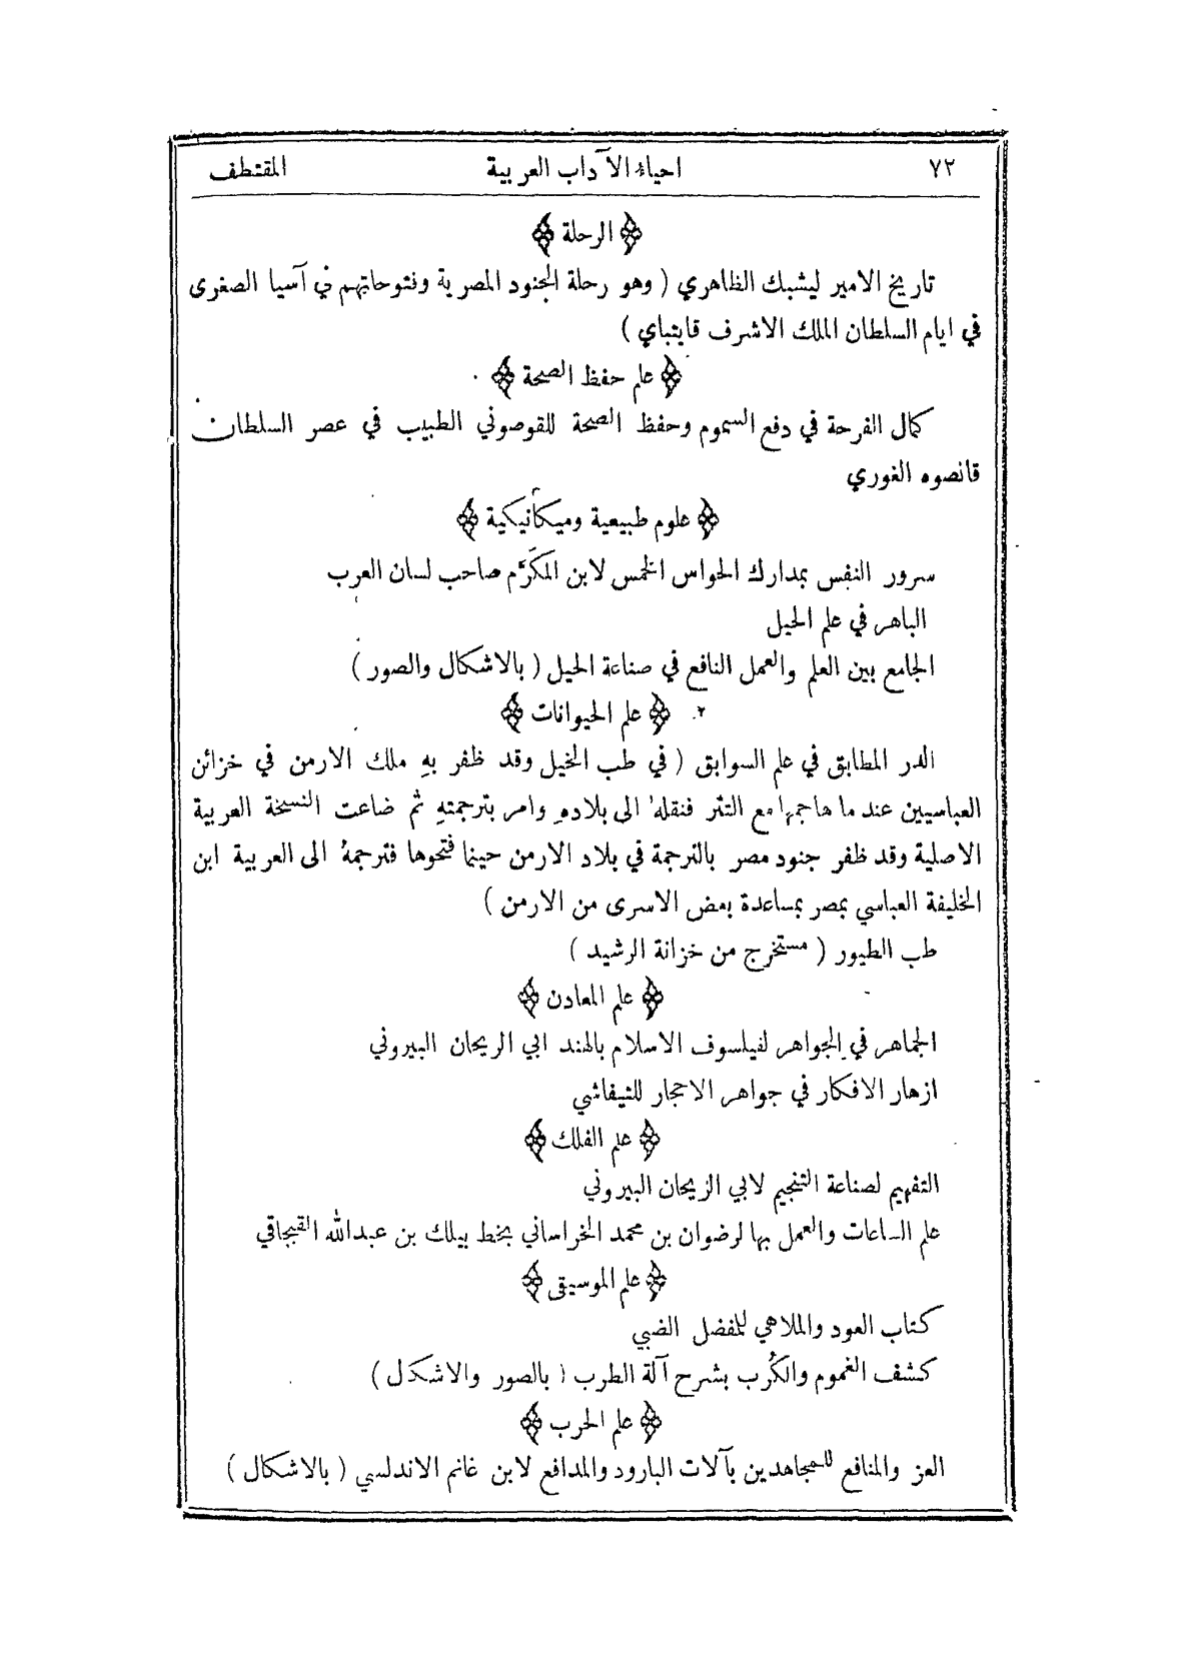 ٧٢ احياء الآداب العربية المقتطف
﴿ الرحلة ﴾
تاريخ الامير ليشبك الظاهري ( وهو رحلة الجنود المصرية وفتوحاتهم في آسيا الصغرى
في ايام السلطان الملك الاشرف قايتباي )
﴿ علم حفظ الصحة ﴾
كمال الفرحة في دفع السموم وحفظ الصحة للقوصوني الطبيب في عصر السلطان
قانصوه الغوري
﴿ علوم طبيعية وميكانيكية ﴾
سرور النفس بمدارك الحواس الخمس لابن المكرَّم صاحب لسان العرب
الباهر في علم الحيل
الجامع بين العلم والعمل النافع في صناعة الحيل ( بالاشكال والصور )
٢. ﴿ علم الحيوانات ﴾
الدر المطابق في علم السوابق ( في طب الخيل وقد ظفر بهِ ملك الارمن في خزائن
العباسيين عند ما هاجمها مع التتر فنقلهُ الى بلادهِ وامر بترجمتهِ ثم ضاعت النسخة العربية
الاصلية وقد ظفر جنود مصر بالترجمة في بلاد الارمن حينما فتحوها فترجمهُ الى العربية ابن
الخليفة العباسي بمصر بمساعدة بعض الاسرى من الارمن )
طب الطيور ( مستخرج من خزانة الرشيد )
﴿ علم المعادن ﴾
الجماهر في الجواهر لفيلسوف الاسلام بالهند ابي الريحان البيروني
ازهار الافكار في جواهر الاحجار للتيفاشي
﴿ علم الفلك ﴾
التفهيم لصناعة التنجيم لابي الريحان البيروني
علم الساعات والعمل بها لرضوان بن محمد الخراساني بخط بيلك بن عبدالله القبجاقي
﴿ علم الموسيقى ﴾
كتاب العود والملاهي للمفضل الضبي
كشف الغموم والكُرب بشرح آلة الطرب ( بالصور والاشكال )
﴿ علم الحرب ﴾
العز والمنافع للمجاهدين بآلات البارود والمدافع لابن غانم الاندلسي ( بالاشكال )